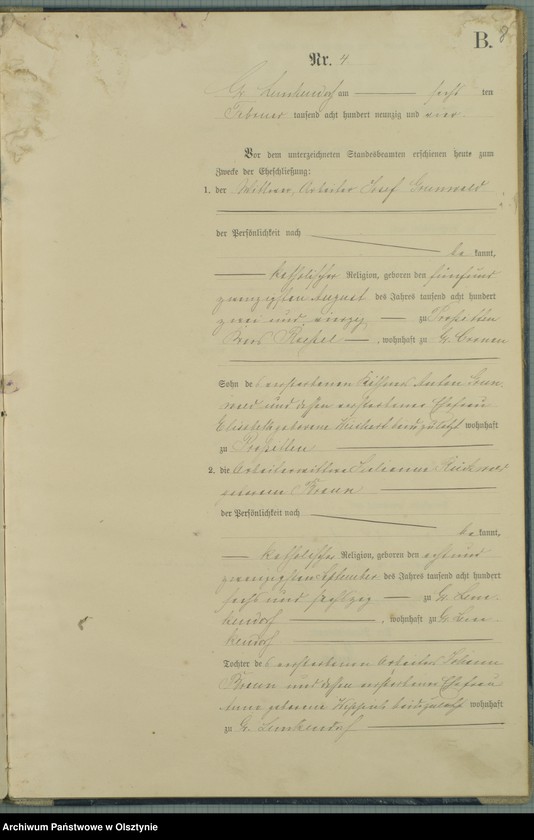 B.
Nr. 4
Gr. Lemkendorf am sechs ten
Februar tausend acht hundert neunzig und vier.
Vor dem unterzeichneten Standesbeamten erschienen heute zum
Zwecke der Eheschließung:
1. der Wittwer, Arbeiter Josef Grunwald
der Persönlichkeit nach
be kannt,
katholischer Religion, geboren den fünfund
zwanzigsten August des Jahres tausend acht hundert
zwei und vierzig zu
Kreis Roessel, wohnhaft zu Gr.
Sohn des verstorbenen Anton Grun
wald und dessen verstorbener Ehefrau
Elisabeth geborene beide zuletzt wohnhaft
zu
2. die Arbeiterwittwe
geborene Braun
der Persönlichkeit nach
be kannt,
katholischer Religion, geboren den acht und
zwanzigsten September des Jahres tausend acht hundert
sechs und zu Gr. Lem-
kendorf, wohnhaft zu Gr. Lem
kendorf
Tochter des verstorbenen Arbeiters Johann
Braun und dessen verstorbenen Ehefrau
Anna geborene beide zuletzt wohnhaft
zu Gr. Lemkendorf
Archiwum Państwowe w Olsztynie